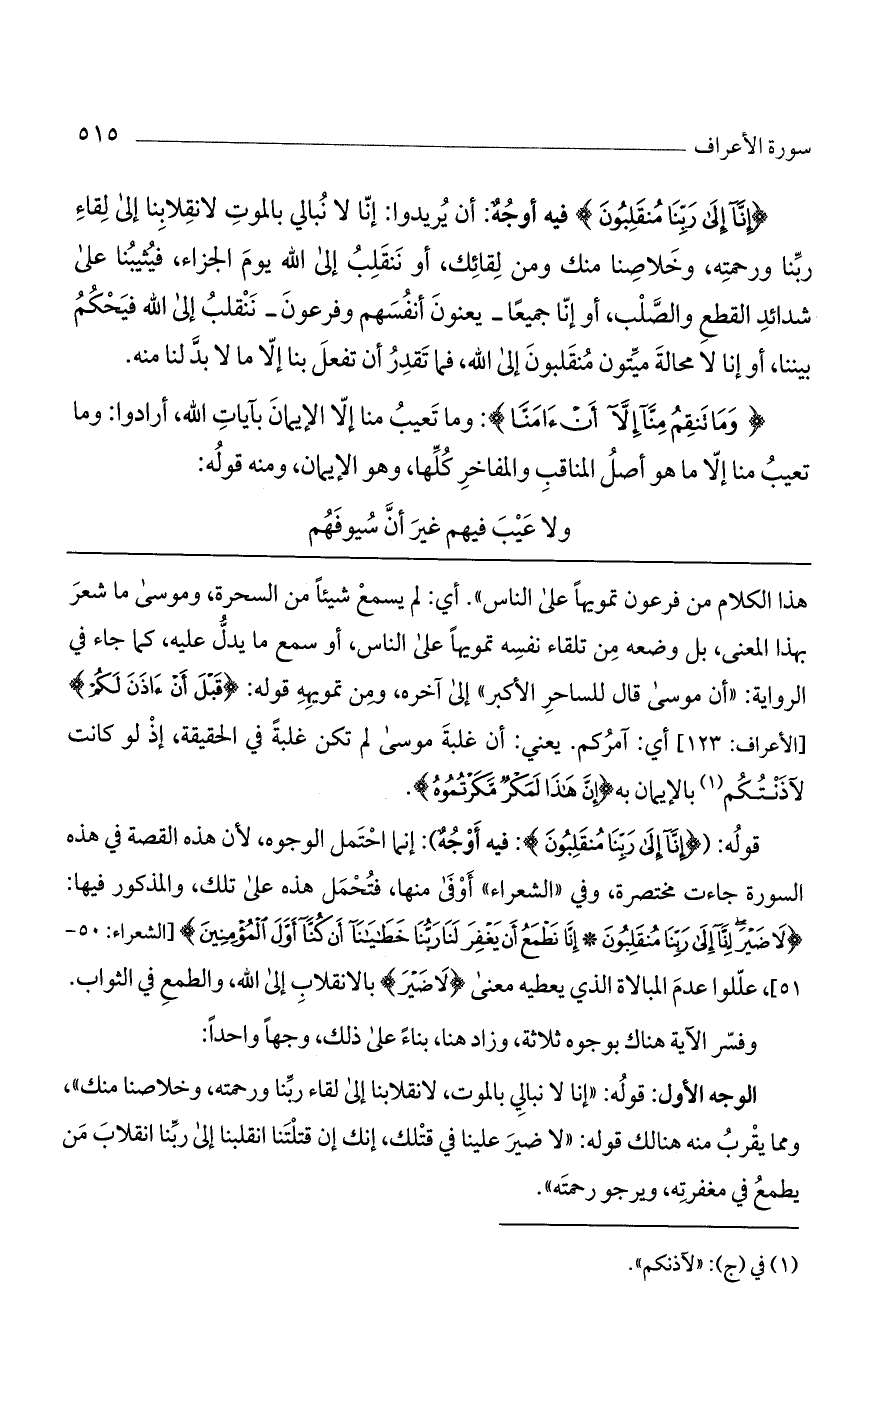 سورة الأعراف ٥١٥
﴿إِنَّآ إِلَىٰ رَبِّنَا مُنقَلِبُونَ﴾ فيه أوجُهٌ: أن يُريدوا: إنّا لا نُبالي بالموتِ لانقِلابِنا إلىٰ لِقاءِ
ربِّنا ورحمتِه، وخَلاصِنا منك ومن لِقائِك، أو نَنقَلِبُ إلىٰ الله يومَ الجزاء، فيُثيبُنا علىٰ
شدائدِ القطعِ والصَّلْب، أو إنّا جميعًا ـ يعنونَ أنفُسَهم وفرعونَ ـ نَنْقلبُ إلىٰ الله فيَحْكُمُ
بيننا، أو إنا لا محالةَ ميِّتون مُنقَلبونَ إلىٰ الله، فما تَقدِرُ أن تفعلَ بنا إلّا ما لا بدَّ لنا منه.
﴿وَمَا تَنقِمُ مِنَّآ إِلَّآ أَنْ ءَامَنَّا﴾: وما تَعيبُ منا إلّا الإيمانَ بآياتِ الله، أرادوا: وما
تعيبُ منا إلّا ما هو أصلُ المناقبِ والمفاخرِ كُلِّها، وهو الإيمان، ومنه قولُه:
ولا عَيْبَ فيهم غيرَ أنَّ سُيوفَهُم
هذا الكلام من فرعون تمويهاً علىٰ الناس». أي: لم يسمعْ شيئاً من السحرة، وموسىٰ ما شعرَ
بهذا المعنى، بل وضعه مِن تلقاء نفسِه تمويهاً علىٰ الناس، أو سمع ما يدلُّ عليه، كما جاء في
الرواية: «أن موسىٰ قال للساحرِ الأكبر» إلىٰ آخره، ومِن تمويههِ قوله: ﴿قَبْلَ أَنْ ءَاذَنَ لَكُمْ﴾
[الأعراف: ١٢٣] أي: آمرُكم. يعني: أن غلبةَ موسىٰ لم تكن غلبةً في الحقيقة، إذْ لو كانت
لآذَنْـتُـكُم(١) بالإيمان به ﴿إِنَّ هَٰذَا لَمَكْرٌ مَّكَرْتُمُوهُ﴾.
قولُه: (﴿إِنَّآ إِلَىٰ رَبِّنَا مُنقَلِبُونَ﴾: فيه أَوْجُهٌ): إنما احْتَمل الوجوه، لأن هذه القصة في هذه
السورة جاءت مختصرة، وفي «الشعراء» أَوْفَىٰ منها، فتُحْمَل هذه علىٰ تلك، والمذكور فيها:
﴿لَا ضَيْرَ ۖ إِنَّآ إِلَىٰ رَبِّنَا مُنقَلِبُونَ * إِنَّا نَطْمَعُ أَن يَغْفِرَ لَنَا رَبُّنَا خَطَٰيَٰنَآ أَن كُنَّآ أَوَّلَ ٱلْمُؤْمِنِينَ﴾ [الشعراء: ٥٠-
٥١]، علّلوا عدمَ المبالاة الذي يعطيه معنىٰ ﴿لَا ضَيْرَ﴾ بالانقلابِ إلىٰ الله، والطمعِ في الثواب.
وفسّر الآية هناك بوجوه ثلاثة، وزاد هنا، بناءً علىٰ ذلك، وجهاً واحداً:
الوجه الأول: قولُه: «إنا لا نبالي بالموت، لانقلابنا إلىٰ لقاء ربِّنا ورحمته، وخلاصنا منك»،
ومما يقْربُ منه هنالك قوله: «لا ضيرَ علينا في قتْلك، إنك إن قتلْتَنا انقلبنا إلىٰ ربِّنا انقلابَ مَن
يطمعُ في مغفرتِه، ويرجو رحمتَه».
(١) في (ج): «لآذنكم».